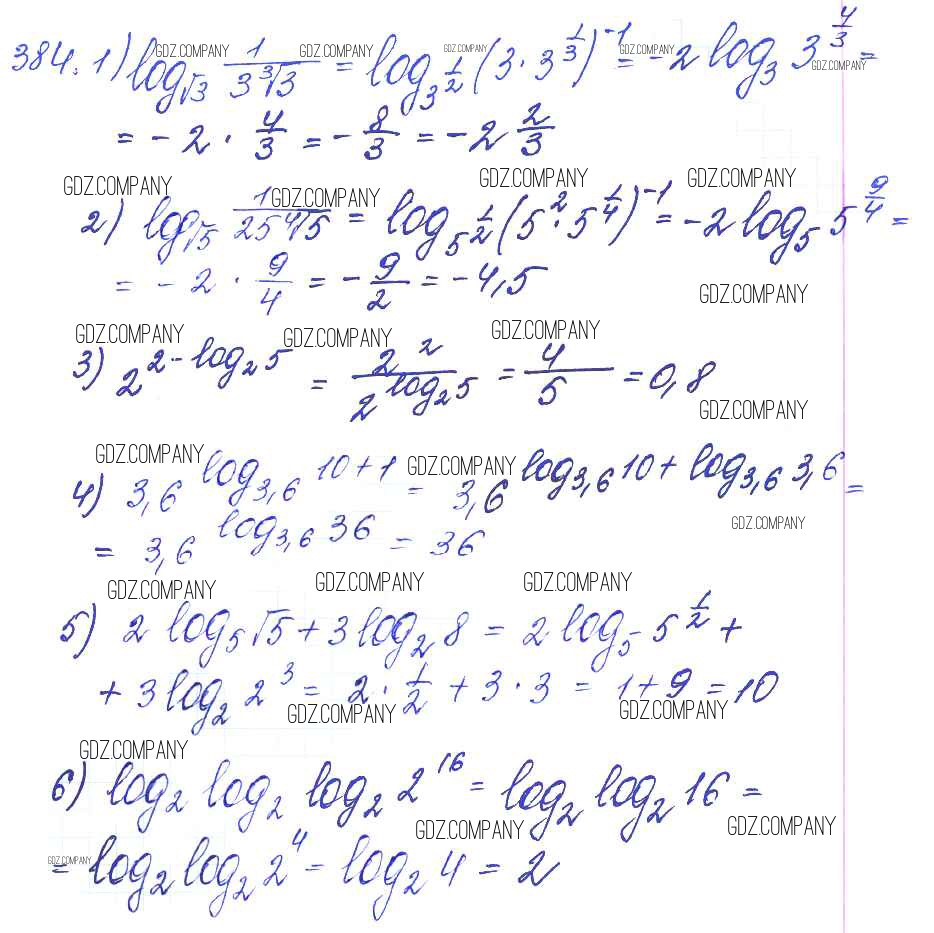 384. 1) log_{√3} 1/(3∛3) = log_{3^{1/2}} (3·3^{1/3})^{-1} = -2 log_3 3^{4/3} =
= -2 · 4/3 = -8/3 = -2 2/3
2) log_{√5} 1/(25 ∜5) = log_{5^{1/2}} (5^2·5^{1/4})^{-1} = -2 log_5 5^{9/4} =
= -2 · 9/4 = -9/2 = -4,5
3) 2^{2-log_2 5} = 2^2/2^{log_2 5} = 4/5 = 0,8
4) 3,6^{log_{3,6} 10+1} = 3,6^{log_{3,6} 10 + log_{3,6} 3,6} =
= 3,6^{log_{3,6} 36} = 36
5) 2 log_5 √5 + 3 log_2 8 = 2 log_5 5^{1/2} +
+ 3 log_2 2^3 = 2 · 1/2 + 3 · 3 = 1 + 9 = 10
6) log_2 log_2 log_2 2^{16} = log_2 log_2 16 =
= log_2 log_2 2^4 = log_2 4 = 2
GDZ.COMPANY GDZ.COMPANY GDZ.COMPANY GDZ.COMPANY
GDZ.COMPANY
GDZ.COMPANY GDZ.COMPANY GDZ.COMPANY GDZ.COMPANY
GDZ.COMPANY
GDZ.COMPANY GDZ.COMPANY GDZ.COMPANY
GDZ.COMPANY
GDZ.COMPANY GDZ.COMPANY
GDZ.COMPANY
GDZ.COMPANY GDZ.COMPANY GDZ.COMPANY
GDZ.COMPANY GDZ.COMPANY
GDZ.COMPANY
GDZ.COMPANY GDZ.COMPANY
GDZ.COMPANY